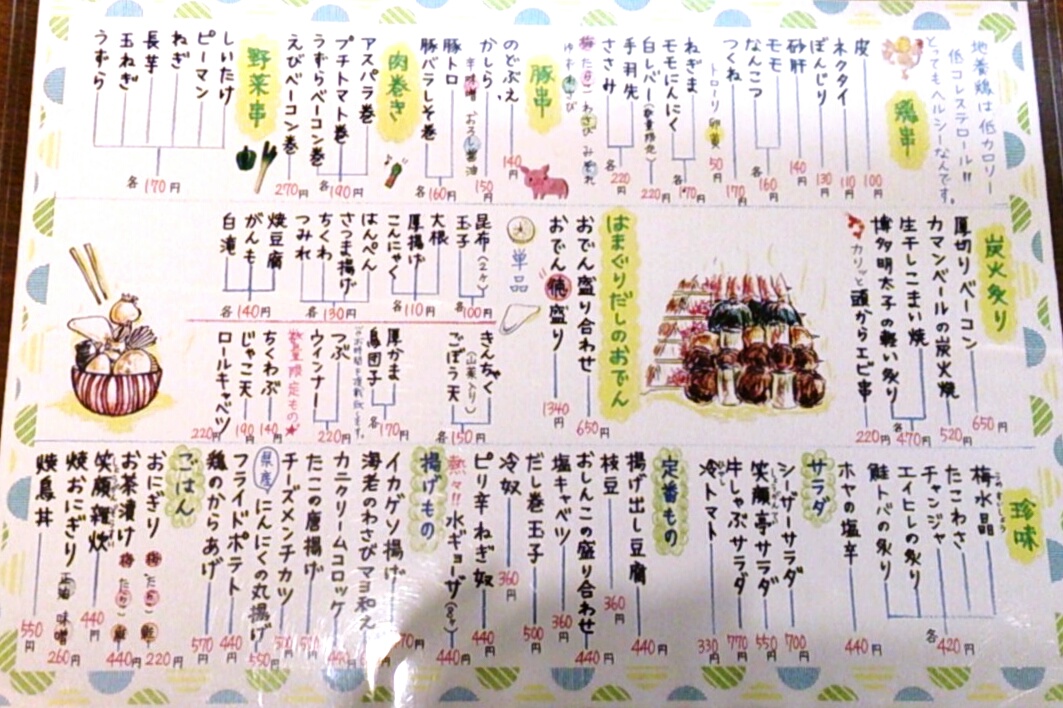 地養鶏は低カロリー
低コレステロール!!
とってもヘルシーなんです。
鶏串
皮 100円
ネクタイ 110円
ぼんじり 130円
砂肝 140円
モモ
なんこつ
各160円
つくね 170円
トローリ卵黄 50円
ねぎま
モモにんにく
各170円
白レバー(数量限定) 220円
手羽先
ささみ
各220円
梅 たたこ わさび みぞれ
ゆずわさび
豚串
のどぶえ 140円
かしら 150円
辛味噌 おろし醤油
豚トロ
豚バラしそ巻
各160円
肉巻き
アスパラ巻
プチトマト巻
うずらベーコン巻
各190円
えびベーコン巻 270円
野菜串
しいたけ
ピーマン
ねぎ
長芋
玉ねぎ
うずら
各170円
炭火炙り
厚切りベーコン 650円
カマンベールの炭火焼 520円
生干しこまい焼
博多明太子の軽い炙り
各470円
カリッと頭からエビ串 220円
はまぐりだしのおでん
おでん盛り合わせ 650円
おでん"横"盛り 1340円
単品
昆布(2ケ)
玉子
各100円
大根
厚揚げ
こんにゃく
各110円
はんぺん
さつま揚げ
ちくわ
つみれ
各130円
焼豆腐
がんも
白滝
各140円
きんちゃく(山菜入り)
ごぼう天
各150円
厚かま
鳥団子
各170円
"お時間を頂戴致します。
つぶ
ウィンナー
各220円
数量限定もの★
ちくわぶ 140円
じゃこ天 190円
ロールキャベツ 220円
珍味
梅水晶
たこわさ
チャンジャ
エイヒレの炙り
鮭トバの炙り
各420円
ホヤの塩辛 440円
サラダ
シーザーサラダ 700円
笑顔亭サラダ 550円
牛しゃぶサラダ 770円
冷トマト 330円
定番もの
揚げ出し豆腐 440円
枝豆 360円
おしんこの盛り合わせ 440円
塩キャベツ 360円
だし巻玉子 500円
冷奴 360円
ピリ辛ねぎ奴 440円
熱々!!水ギョーザ 440円
揚げもの
イカゲソ揚げ
海老のわさびマヨ和え
カニクリームコロッケ 440円
たこの唐揚げ
チーズメンチカツ
県産にんにくの丸揚げ 550円
フライドポテト 440円
鶏のからあげ 570円
ごはん
おにぎり 220円
お茶漬け 440円
笑顔雑炊 440円
焼おにぎり 味噌 260円
焼鳥丼 550円